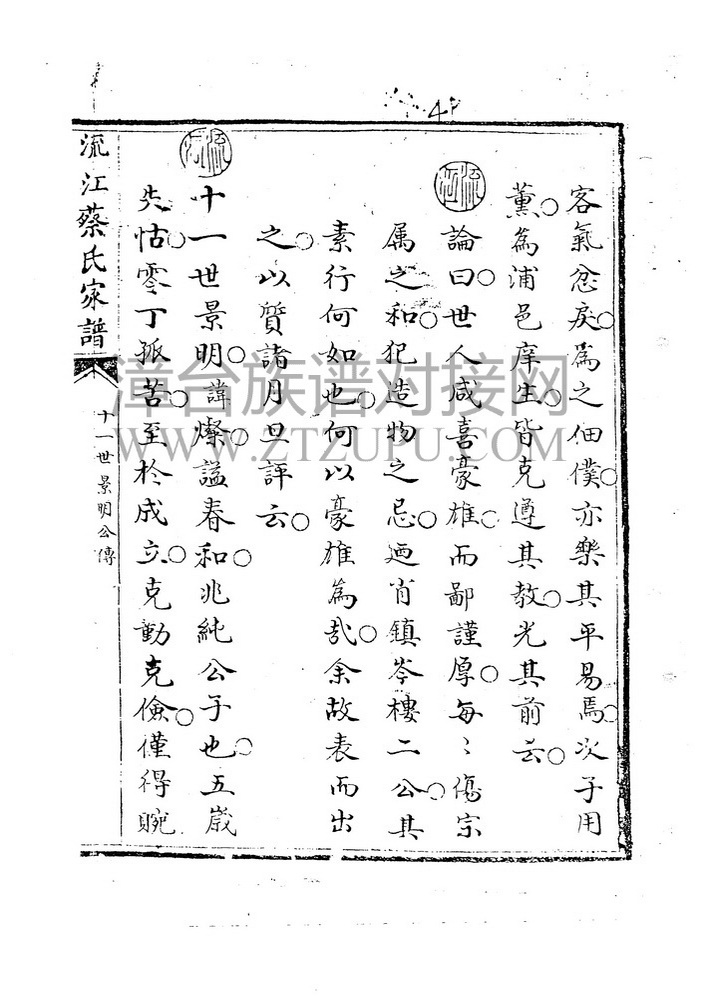 4
客氣忿戾○為之佃僕○亦樂其平易焉○次子用
薰○為浦邑庠生○皆克遵其教○光其前云○
流江
論曰○世人咸喜豪雄○而鄙謹厚○每〻傷宗
属之和○犯造物之忌○廼肖鎮岑樓二公○其
素行何如也○何以豪雄為哉○余故表而出
之○以質諸月旦評云○
流江
十一世景明○諱燦○謚春和○兆純公子也○五歲
失怙○零丁孤苦○至於成立○克勤克儉○僅得
流江蔡氏家譜
十一世景明公傳
漳台族谱对接网
WWW.ZTZUPU.COM